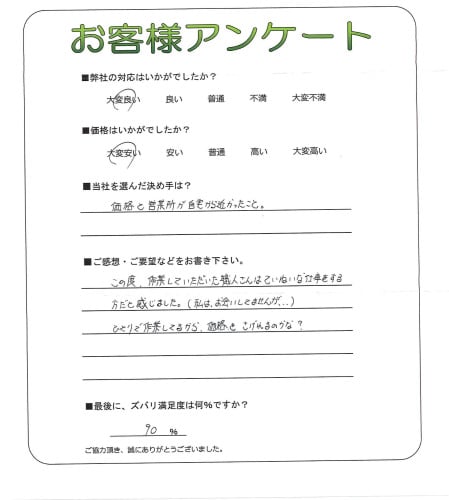 お客様アンケート
■弊社の対応はいかがでしたか？
大変良い 良い 普通 不満 大変不満
■価格はいかがでしたか？
大変安い 安い 普通 高い 大変高い
■当社を選んだ決め手は？
価格と営業所が自宅から近かったこと。
■ご感想・ご要望などをお書き下さい。
この度、作業していただいた職人さんはていねいな仕事をする
方だと感じました。(私は、お会いしてませんが…)
ひとりで作業してるから、価格もさげれるのかな？
■最後に、ズバリ満足度は何%ですか？
90 %
ご協力頂き、誠にありがとうございました。